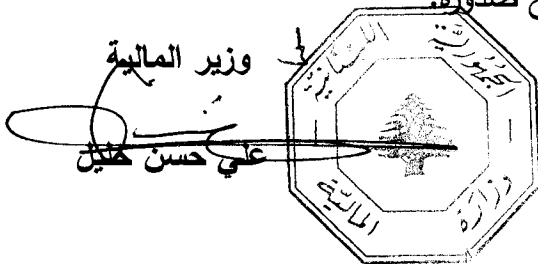 صدوره.
وزير المالية
علي حسن خليل
الجمهورية اللبنانية
وزارة المالية